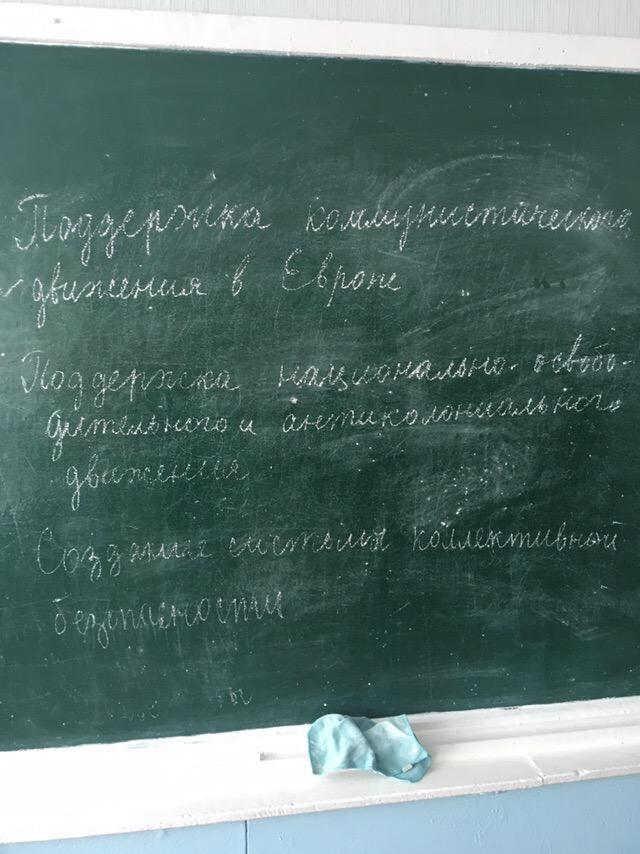 Поддержка коммунистического
движения в Европе
Поддержка национально-освобо-
дительного и антиколониального
движения
Создание системы коллективной
безопасности
ы